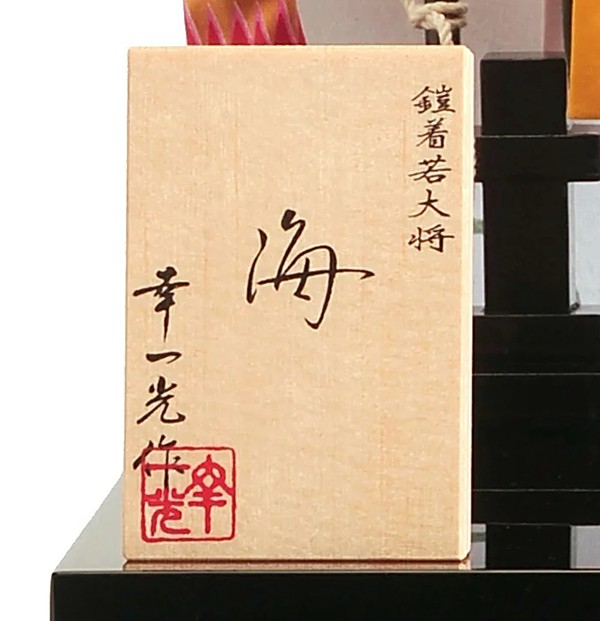 鎧着若大将
海
幸一光作
幸一光